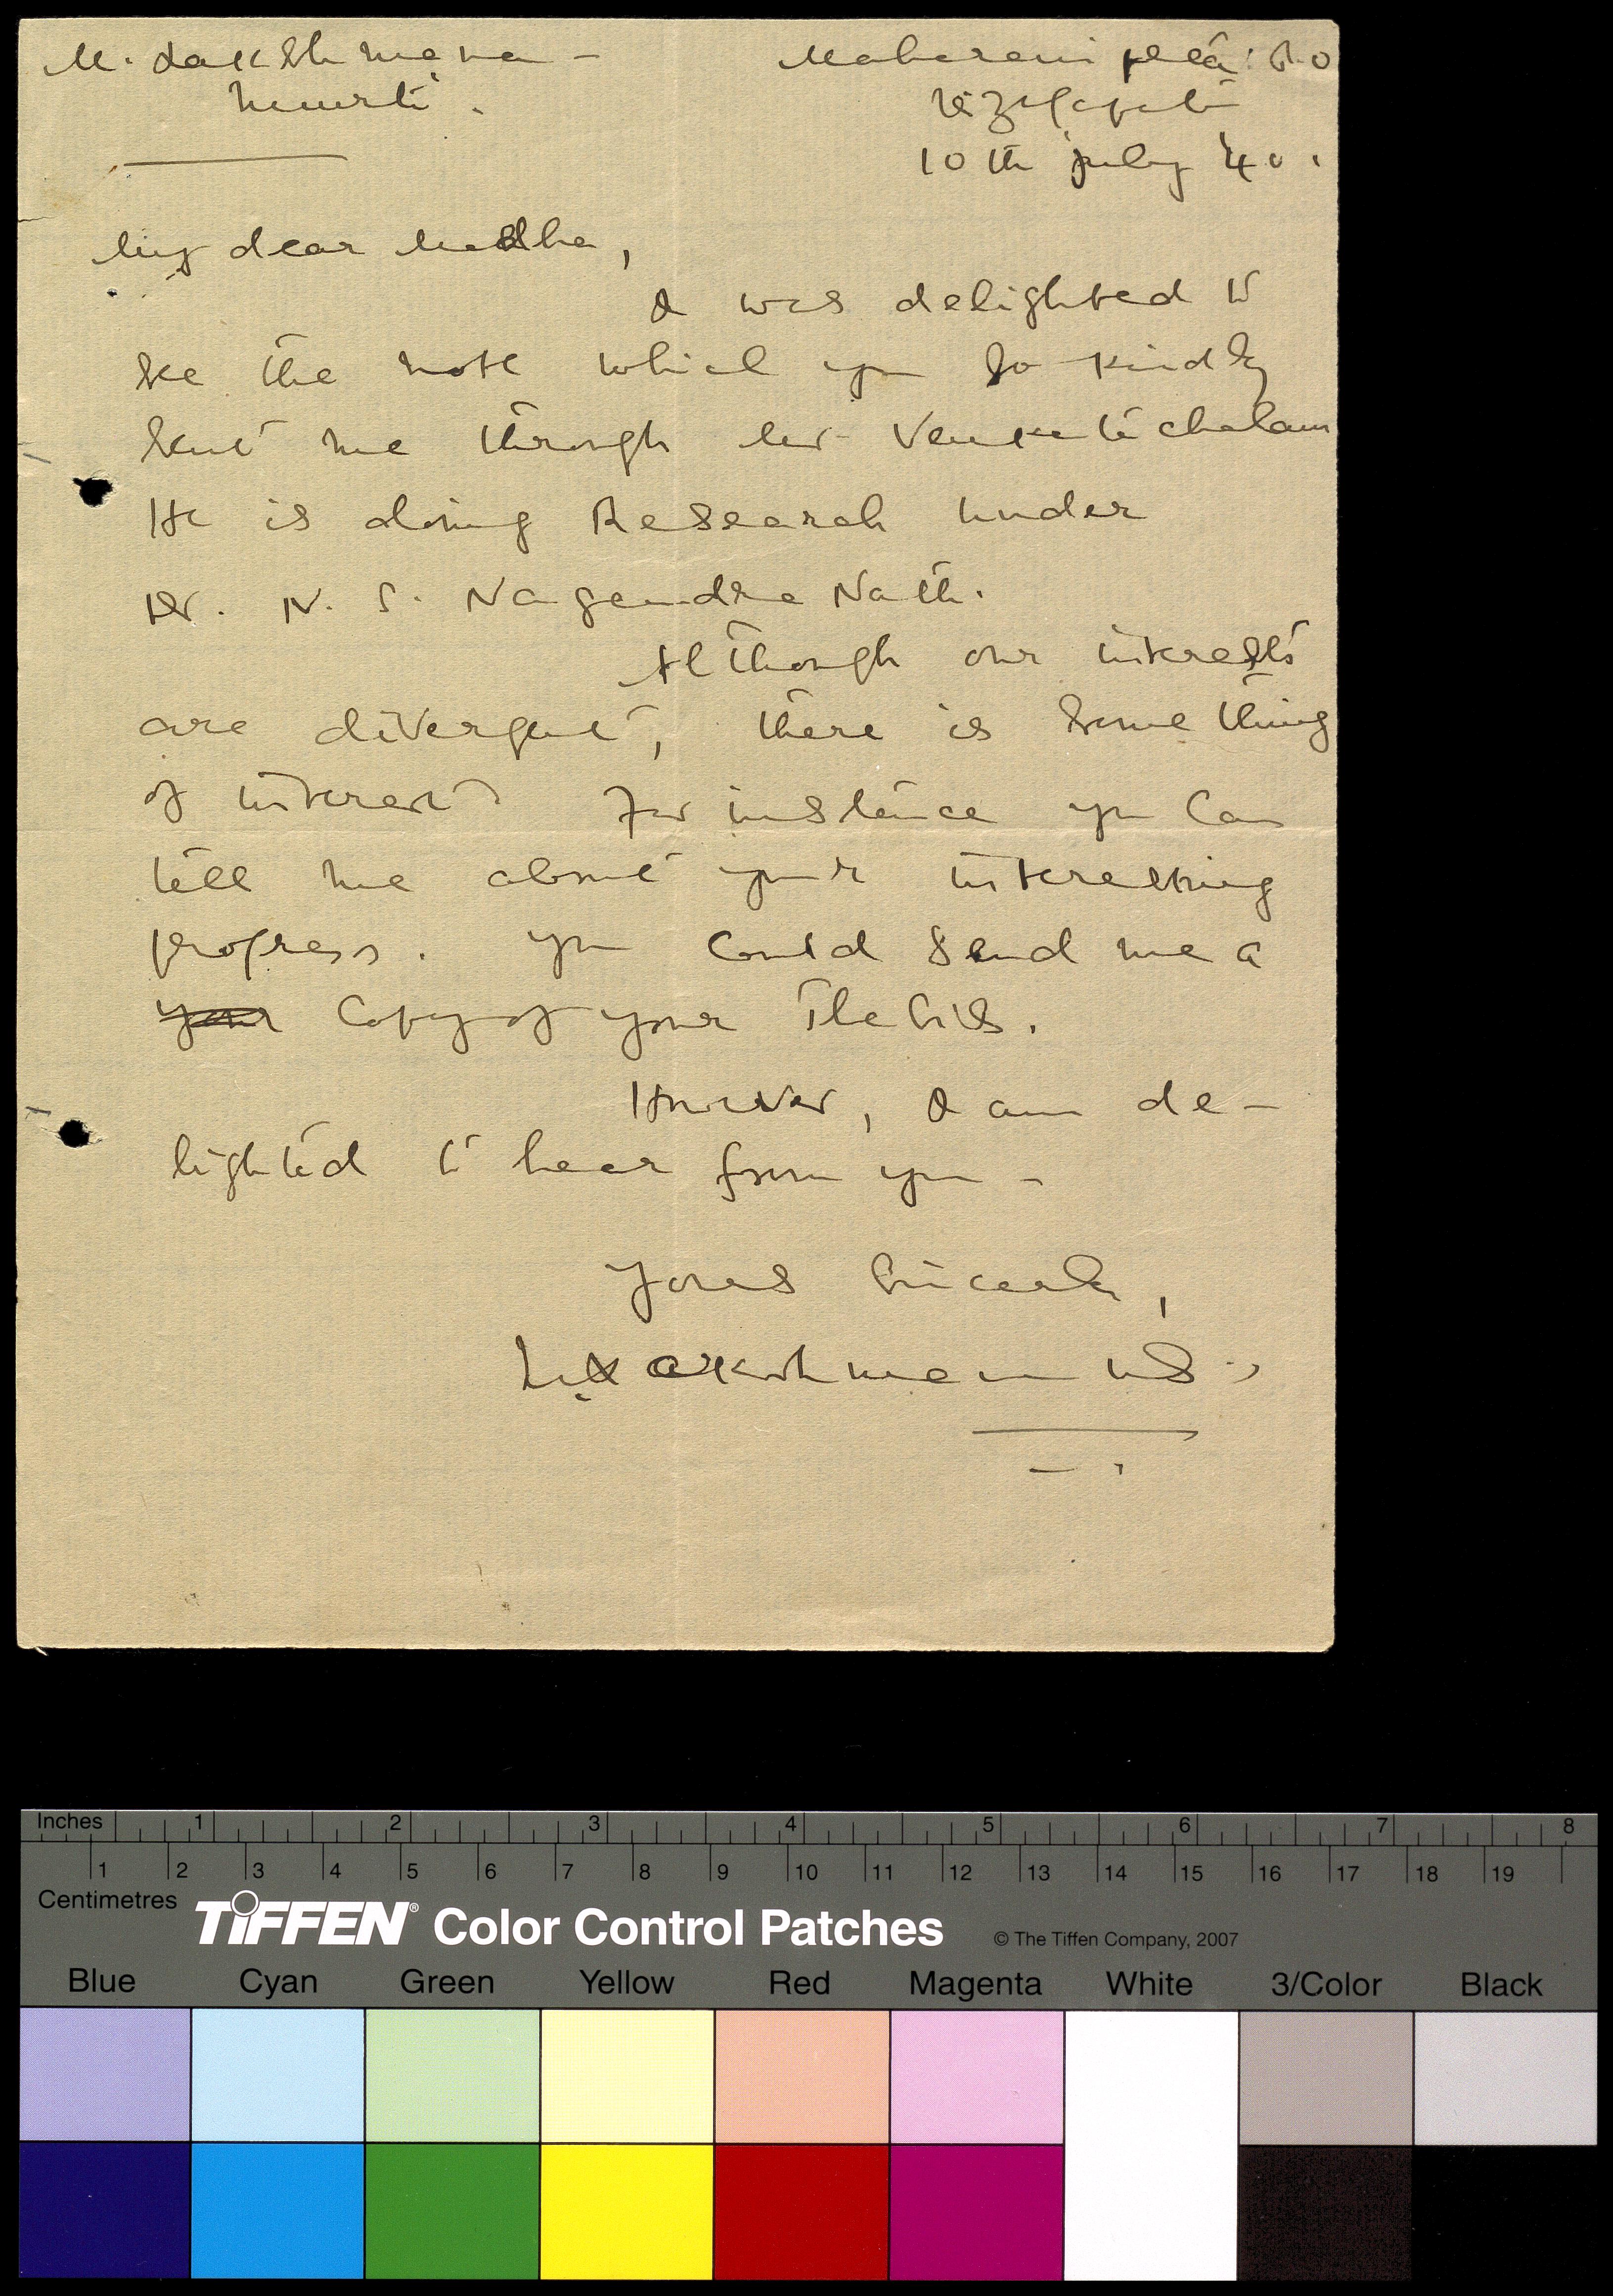 M. Lakshmana-
murti.
Maharanipeta P.O
Vizagapatam
10th July '40.
My dear Madhava,
I was delighted to
see the note which you so kindly
sent me through Mr Venkatachalam
He is doing Research under
Dr. N. S. Nagendra Nath.
Although our interests
are divergent, there is something
of interest. For instance you can
tell me about your interesting
progress. You could send me a
your copy of your Thesis.
However, I am de-
lighted to hear from you -
Yours Sincerely,
Inches 1 2 3 4 5 6 7 8
1 2 3 4 5 6 7 8 9 10 11 12 13 14 15 16 17 18 19
Centimetres
TIFFEN® Color Control Patches © The Tiffen Company, 2007
Blue Cyan Green Yellow Red Magenta White 3/Color Black